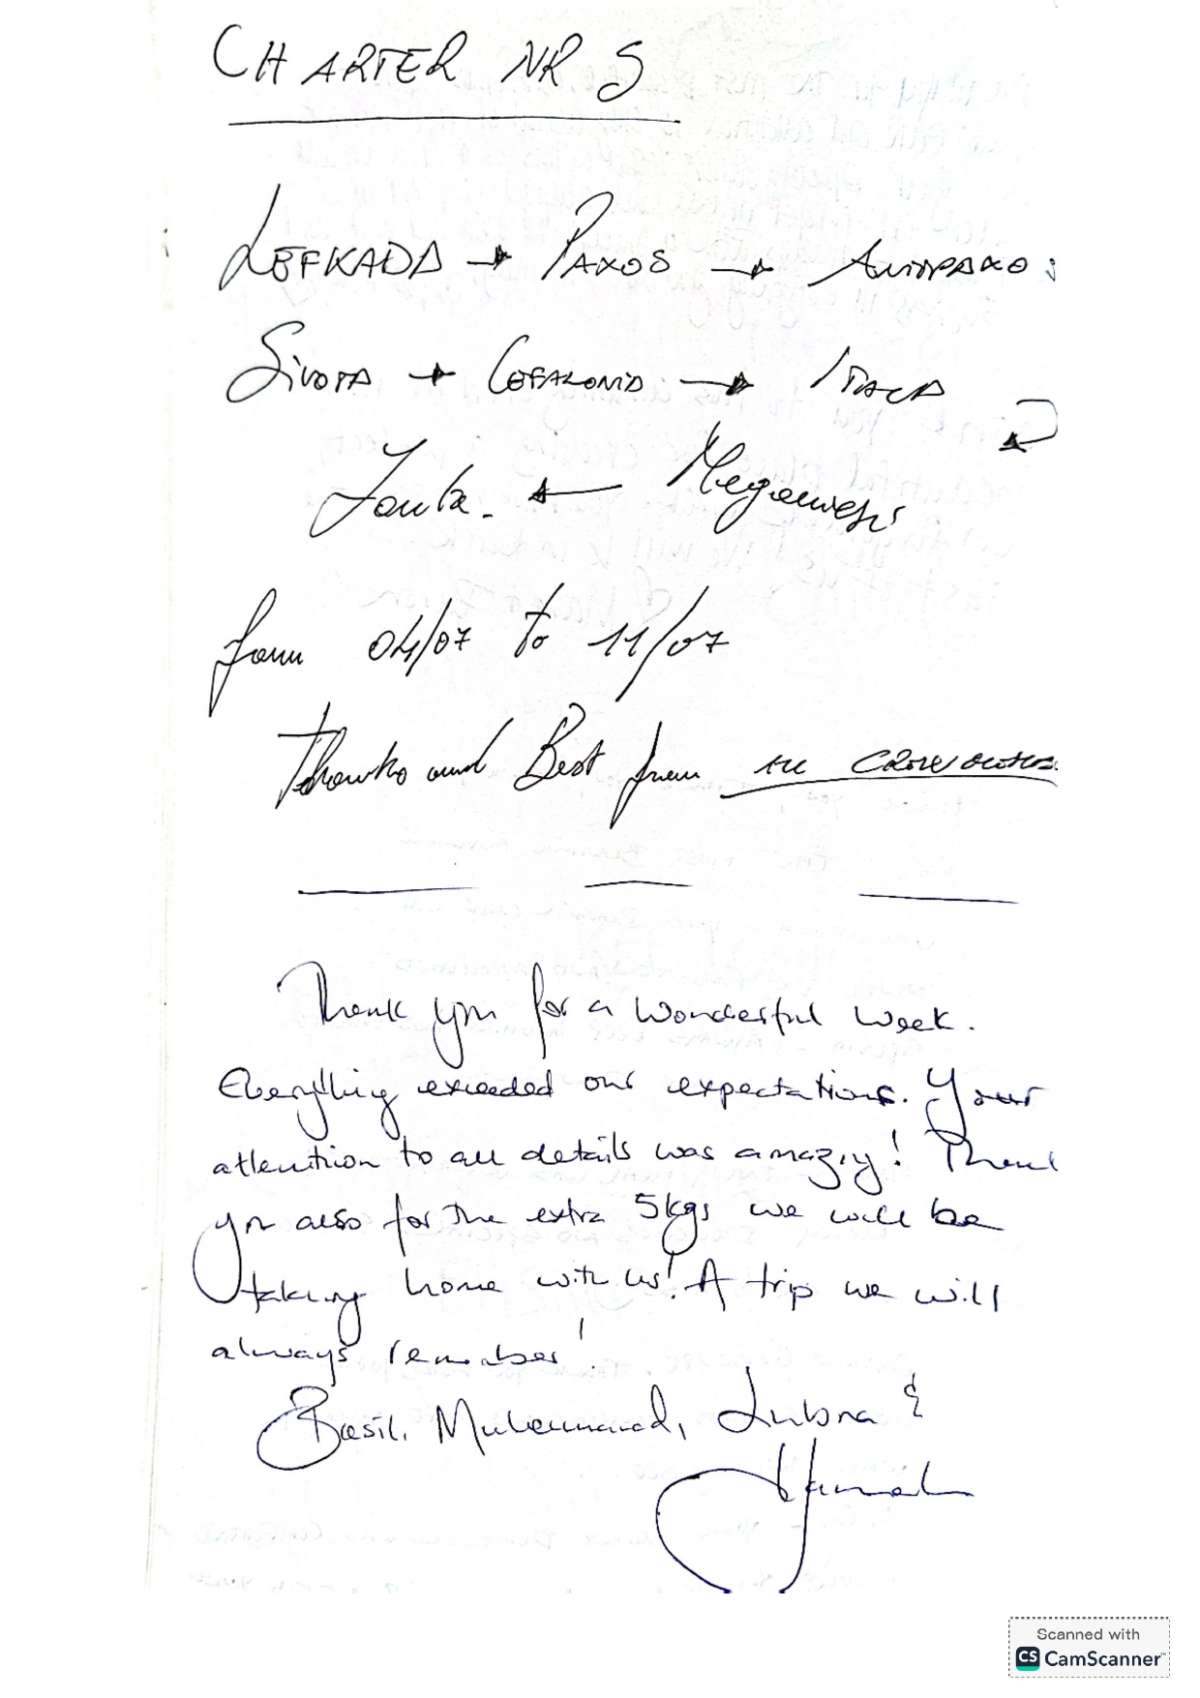 CHARTER NR 5
LEFKADA → PAXOS → ANTIPAXO:
SIVOTA → CEFALONIA → ITACA
Meganisi
from 04/07 to 11/07
Thanks and Best from
Thank you for a wonderful week.
Everything exceeded our expectations. Your
attention to all details was amazing! Thank
you also for the extra 5kgs we will be
taking home with us! A trip we will
always remember!
Basil, Muhammad, Lubna &
Hannah
Scanned with
CS CamScanner